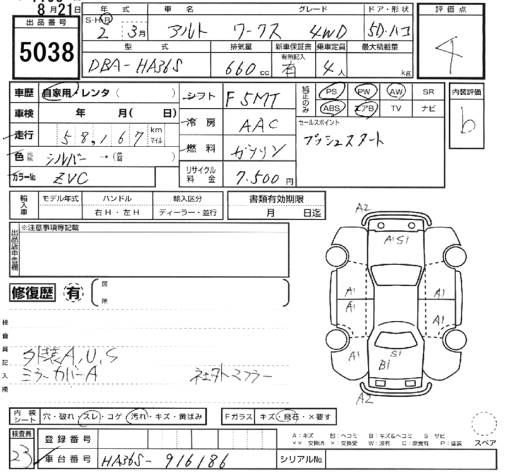 8月21日
出品番号
5038
年式 車名 グレード ドア・形状
S・H・R 2年 3月 アルト ワークス 4WD 5D・ハコ
型式 排気量 新車保証書 乗車定員 最大積載量
DBA-HA36S 660cc 有無記入 有 4人 kg
評価点
4
内装評価
b
車歴 自家用・レンタ ( )
車検 年 月( 日)
走行 58,167 km マイル
色 シルバー →( 替)
カラー№ ZVC
シフト F5MT
冷房 AAC
燃料 ガソリン
リサイクル料金 7,500円
純正のみ PS PW AW SR
ABS エアB TV ナビ
セールスポイント
プッシュスタート
輸入車 モデル年式 ハンドル 輸入区分
右H・左H ディーラー・並行
書類有効期限
月 日迄
※注意事項等記載
修復歴 有
検査員記入欄
外装A,U,S
ミラーカバーA
社外マフラー
A2
A1 S1
A1 A1
A1 A1
S1
B1
A2
内装シート 穴・破れ・スレ・コゲ・汚れ・キズ・黄ばみ
Fガラス キズ・飛石・×要す
A:キズ U:ヘコミ B:キズ&ヘコミ S:サビ
スペア
検査員
23
登録番号
車台番号 HA36S-916186
シリアル№